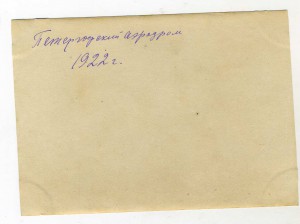 Петергофский Аэродром
1922 г.